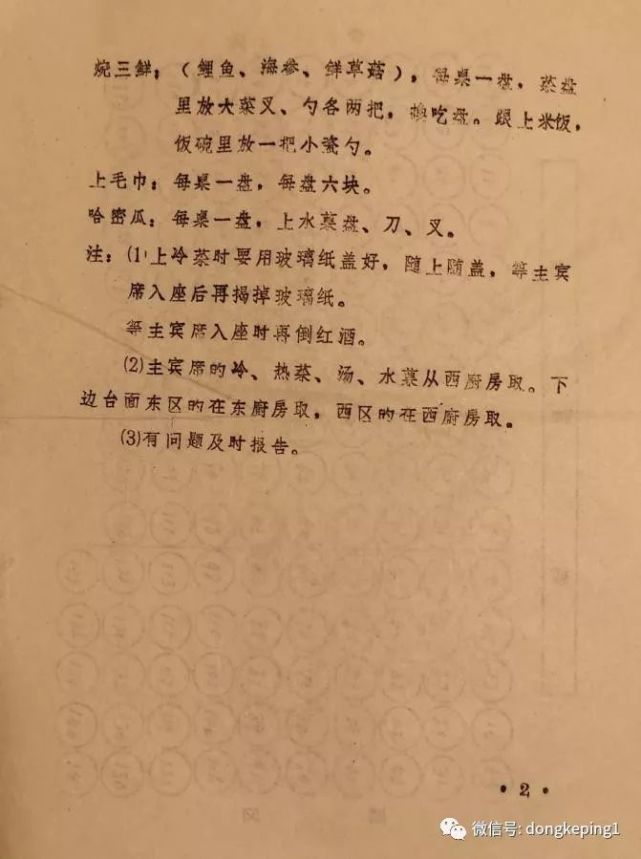 烧三鲜：（鲤鱼、海参、鲜草菇），每桌一盘，菜盘
里放大菜叉、勺各两把，换吃盘。跟上米饭，
饭碗里放一把小瓷勺。
上毛巾：每桌一盘，每盘六块。
哈密瓜：每桌一盘，上水菓盘、刀、叉。
注：⑴上冷菜时要用玻璃纸盖好，随上随盖，等主宾
席入座后再揭掉玻璃纸。
等主宾席入座时再倒红酒。
⑵主宾席的冷、热菜、汤、水菓从西厨房取。下
边台面东区的在东厨房取，西区的在西厨房取。
⑶有问题及时报告。
·2·
微信号: dongkeping1